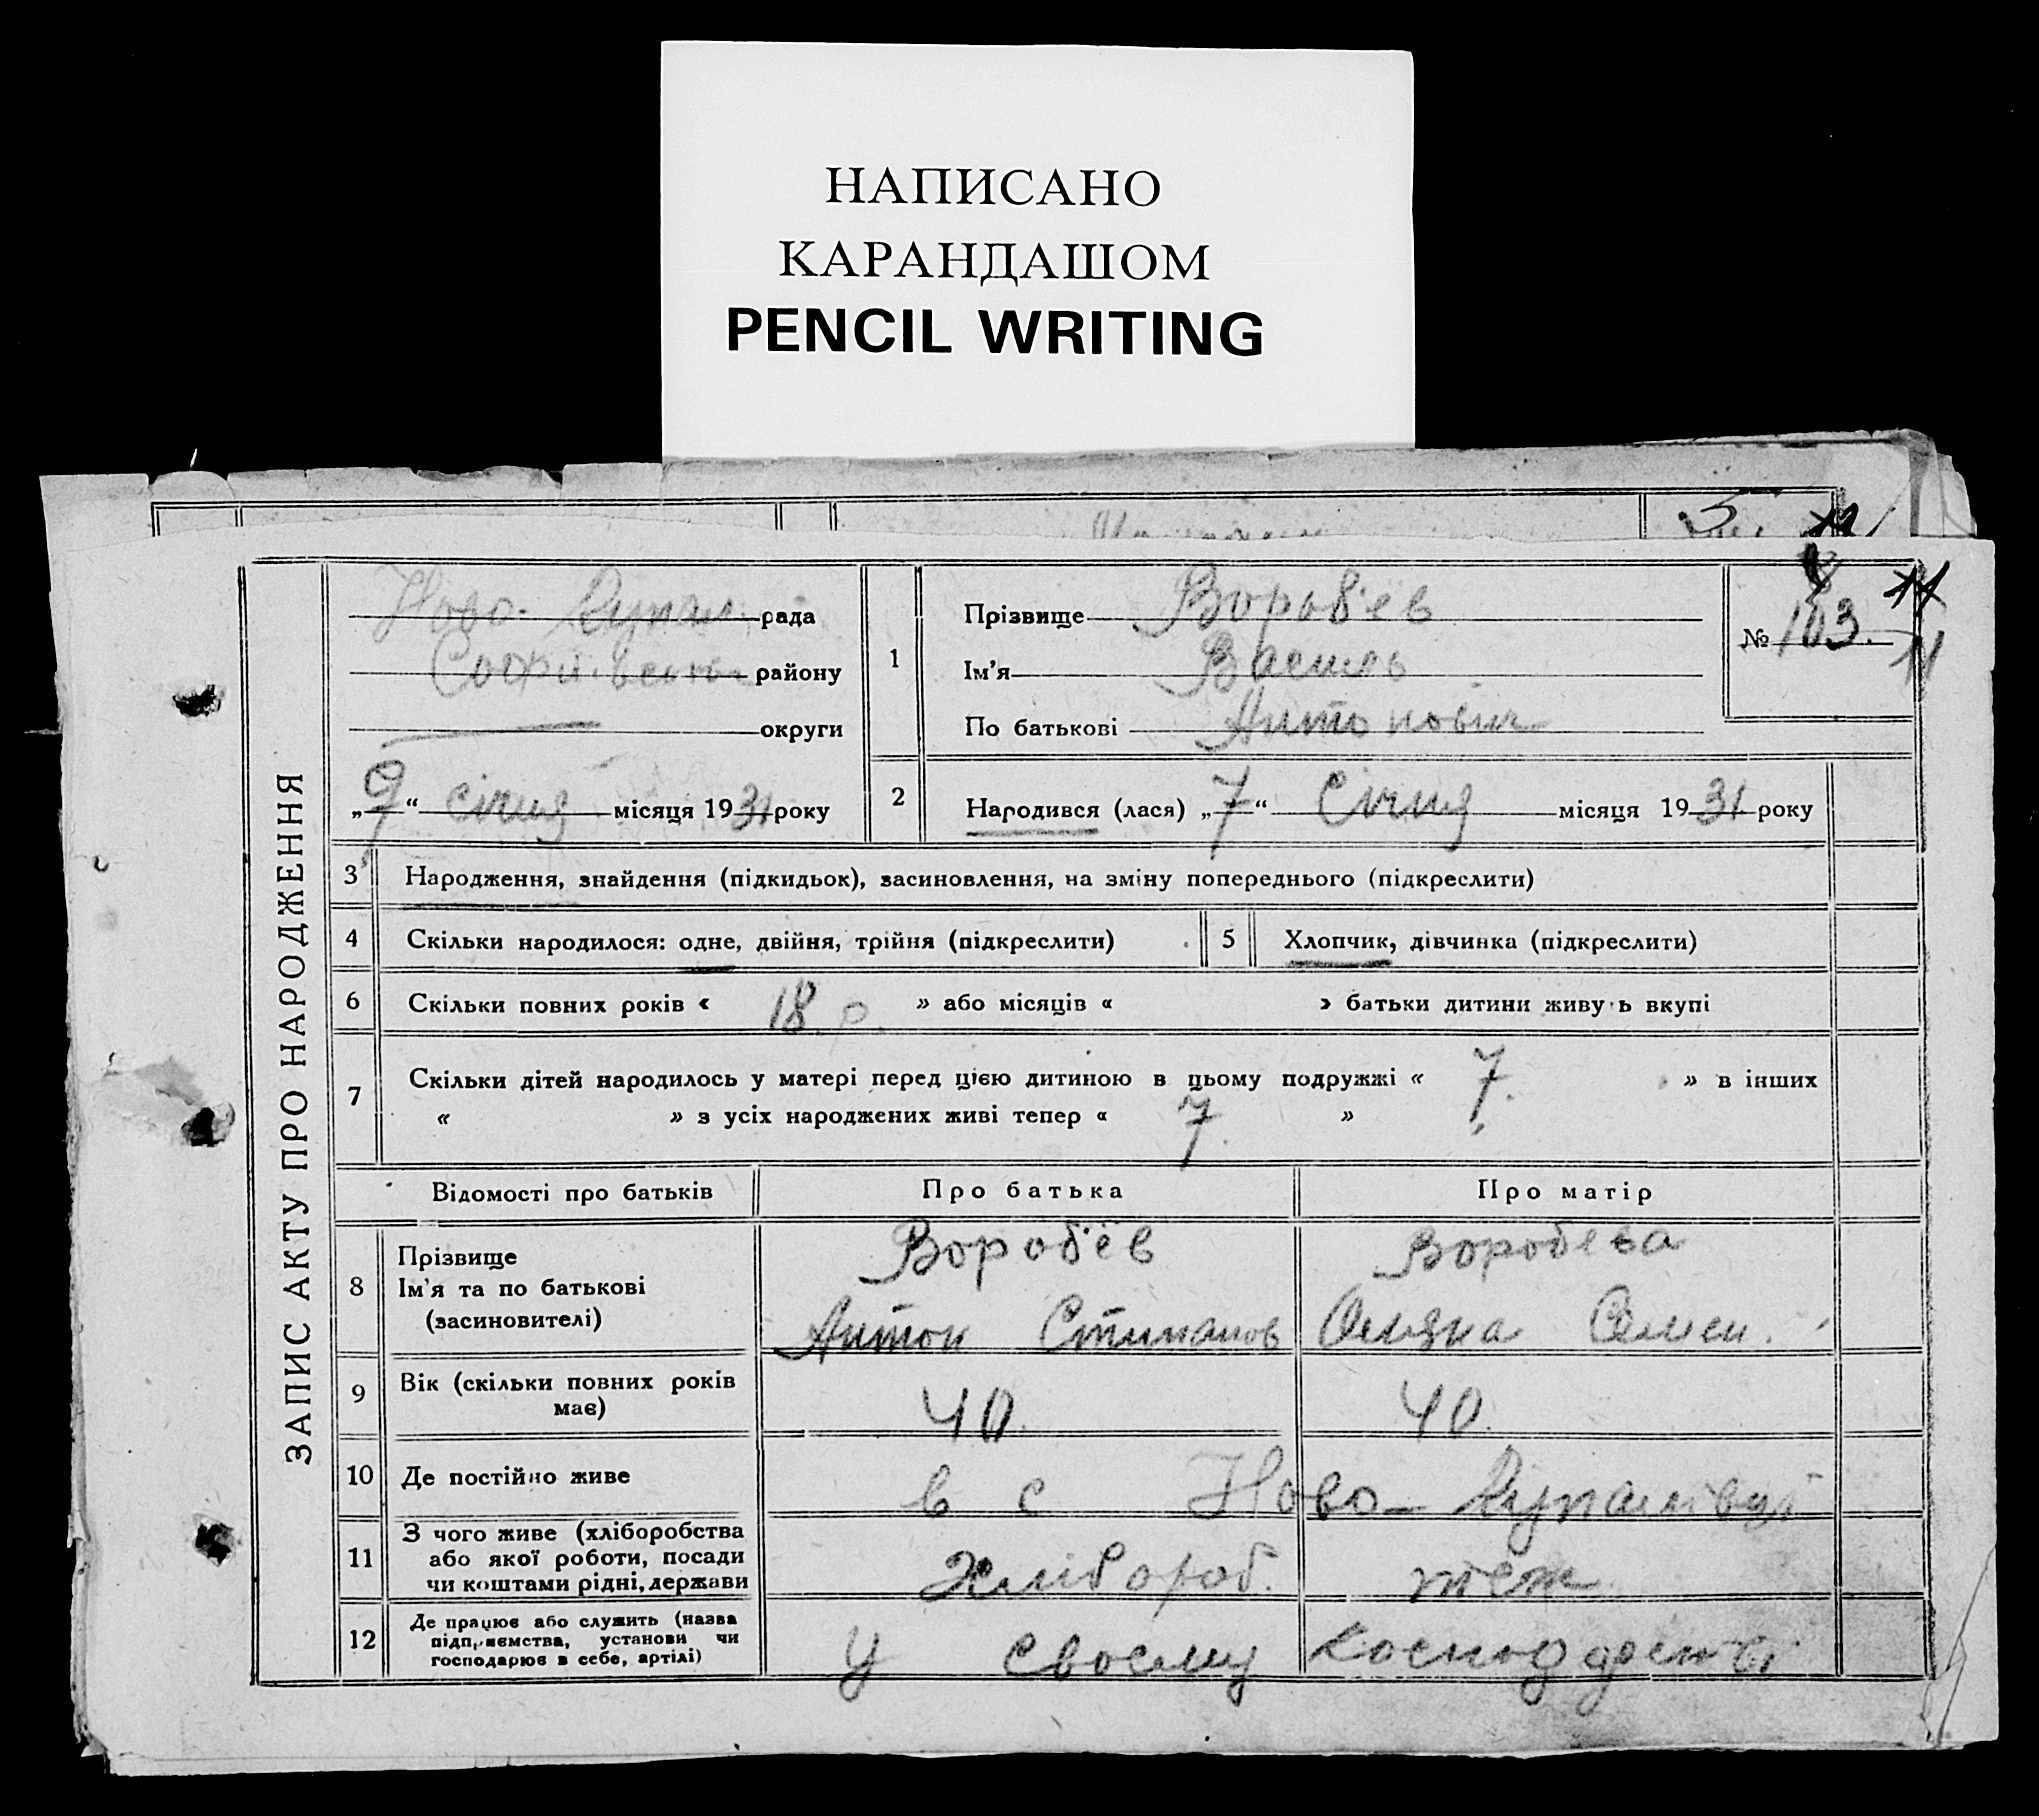 НАПИСАНО
КАРАНДАШОМ
PENCIL WRITING
ЗАПИС АКТУ ПРО НАРОДЖЕННЯ
Ново- рада
району
округи
„9“ січня місяця 1931 року
1
Прізвище Вороб'ёв
Ім'я Василь
По батькові Антонович
№ 103.
11
2 Народився (лася) „7“ Січня місяця 1931 року
3 Народження, знайдення (підкидьок), засиновлення, на зміну попереднього (підкреслити)
4 Скільки народилося: одне, двійня, трійня (підкреслити)
5 Хлопчик, дівчинка (підкреслити)
6 Скільки повних років « 18 р. » або місяців « » батьки дитини живу ь вкупі
7 Скільки дітей народилось у матері перед цією дитиною в цьому подружжі « 7. » в інших
« » з усіх народжених живі тепер « 7. »
Відомості про батьків Про батька Про матір
8 Прізвище
Ім'я та по батькові
(засиновителі)
Вороб'ёв
Антон Стипанов
Воробева
Семен.
9 Вік (скільки повних років
має)
40.
40.
10 Де постійно живе
в с Ново-
11 З чого живе (хліборобства
або якої роботи, посади
чи коштами рідні, держави
Хлібороб.
теж
12 Де працює або служить (назва
підприємства, установи чи
господарює в себе, артілі)
у своєму